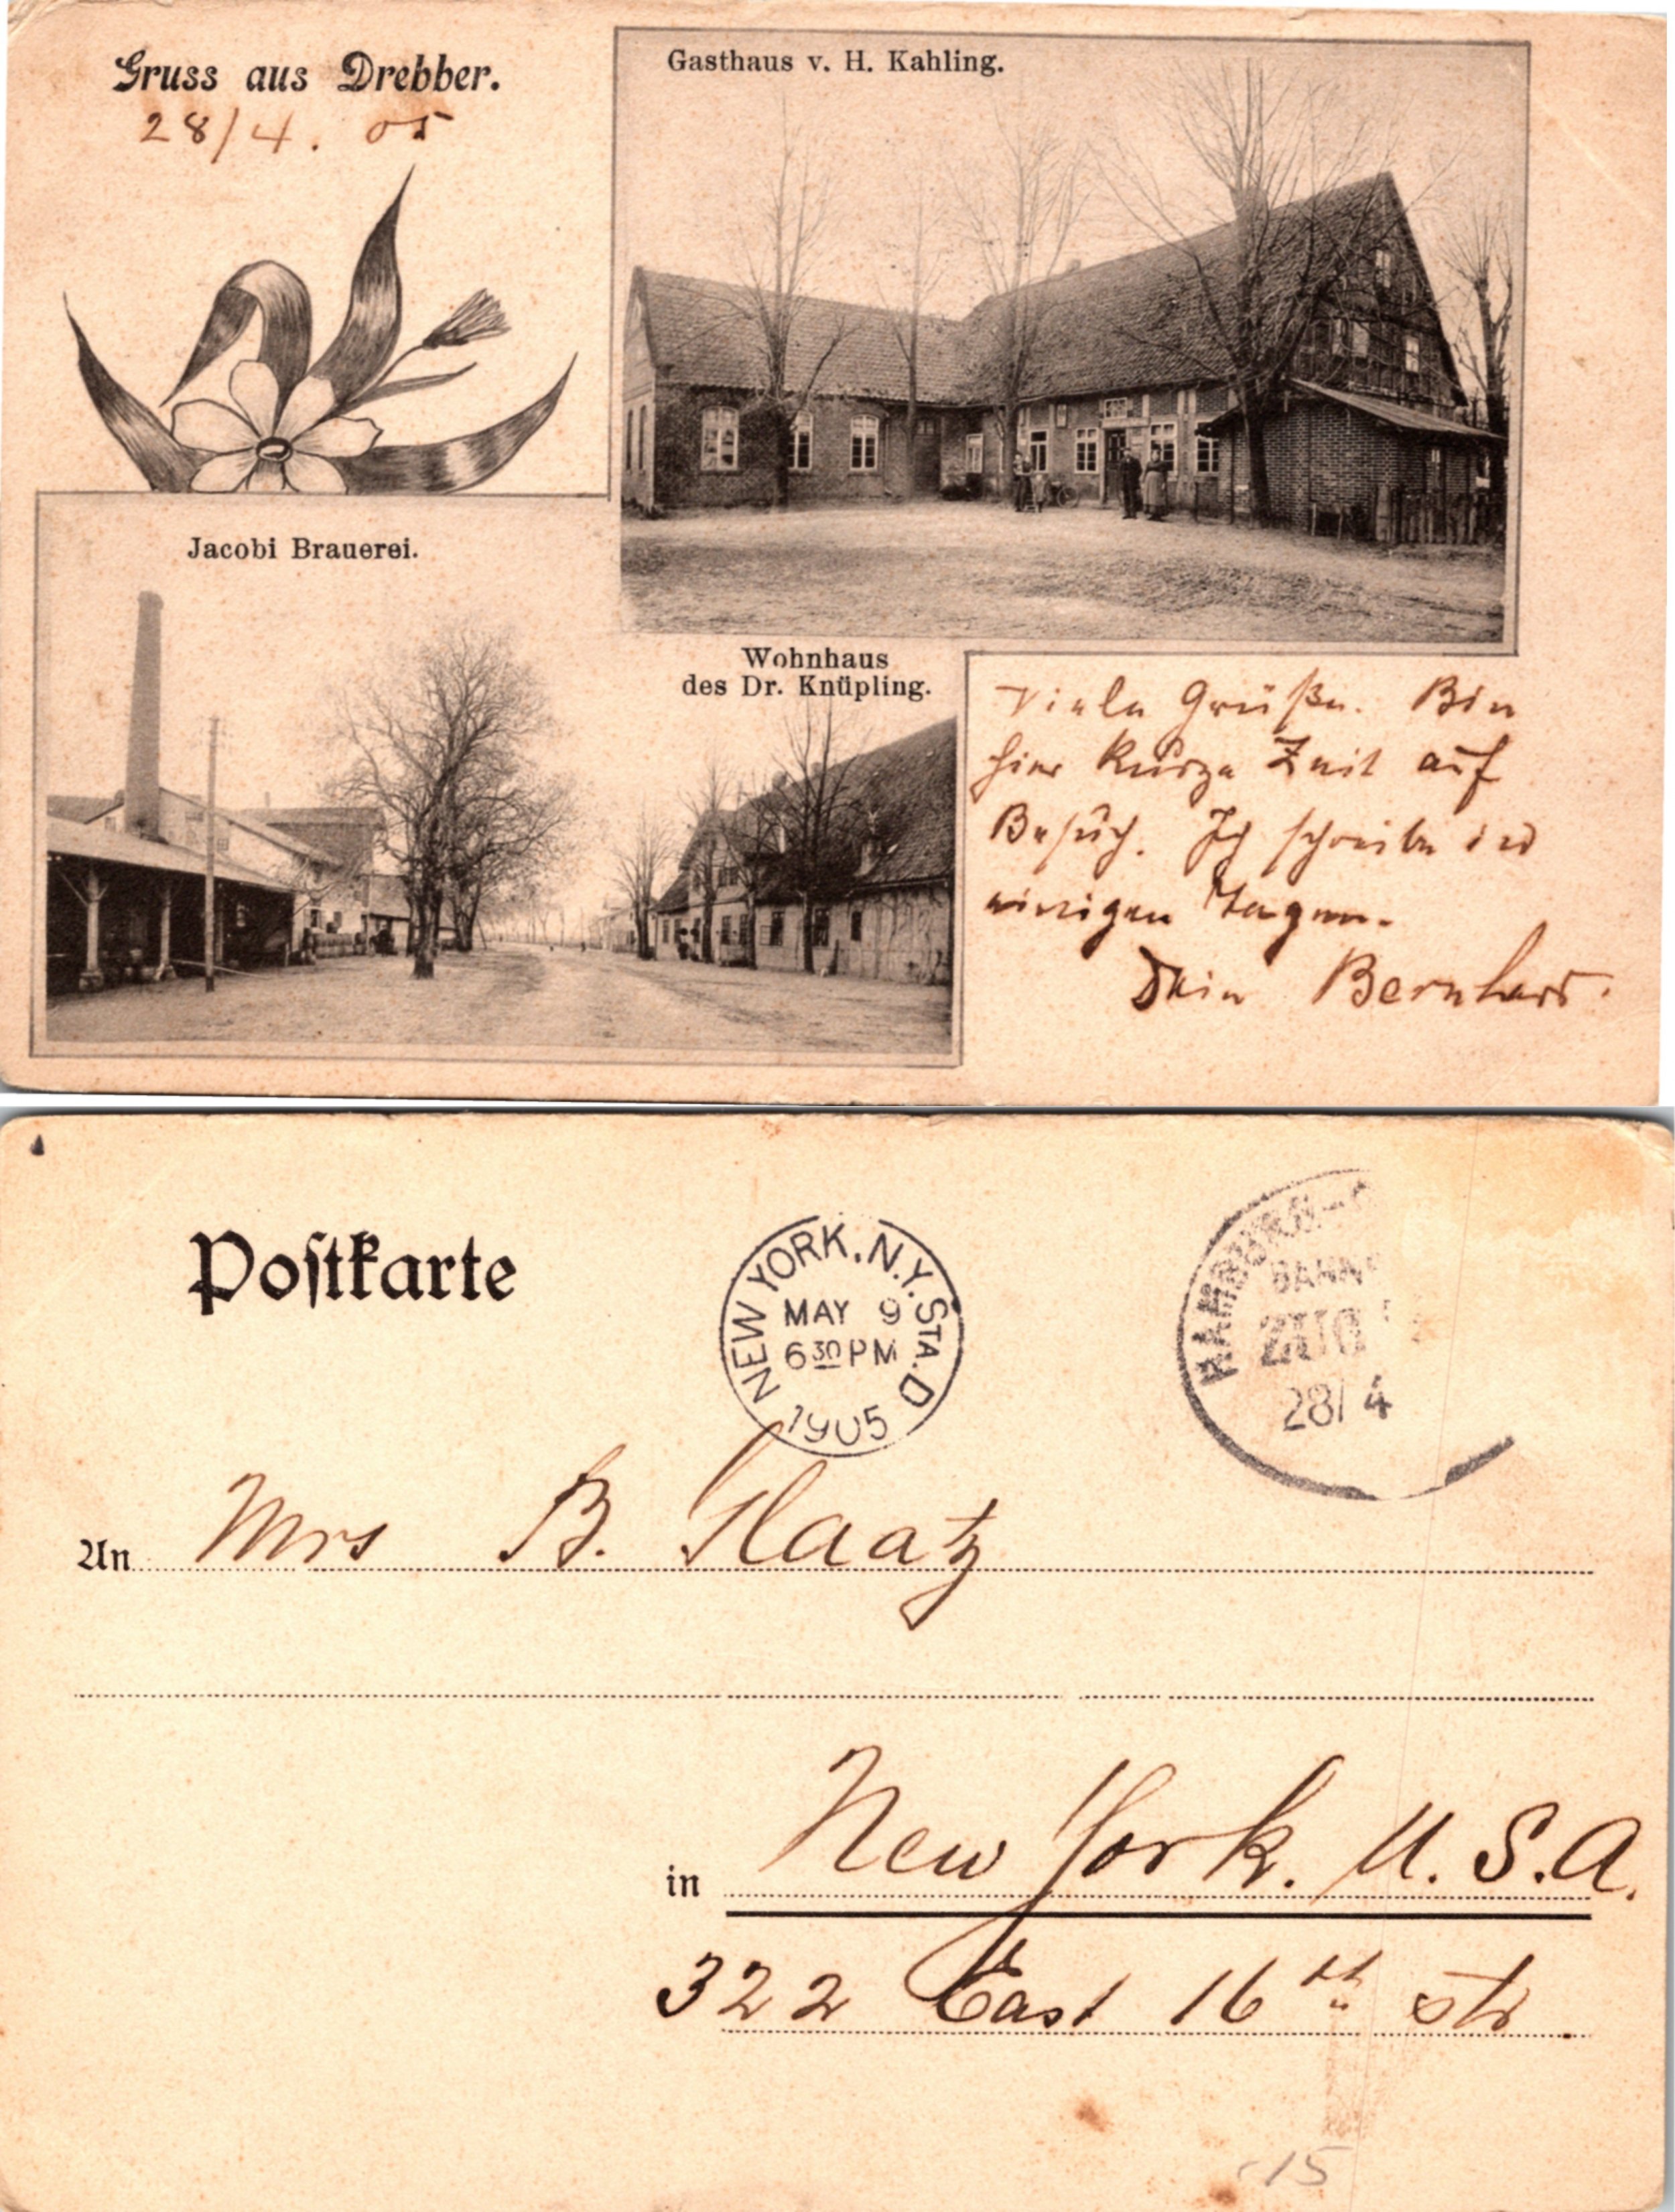 Gruss aus Drebber.
28/4. 05
Gasthaus v. H. Kahling.
Jacobi Brauerei.
Wohnhaus
des Dr. Knüpling.
Viele Grüße. Bin
hier kurze Zeit auf
Besuch. Ich schreibe in
einigen Tagen.
Dein Bernhard.
Postkarte
NEW YORK, N.Y. STA. D
MAY 9
6 30 PM
1905
HAMBURG-
BAHN
ZUG
28/4
An Mrs B. Haatz
in New York. U.S.A.
322 East 16th str.
-15